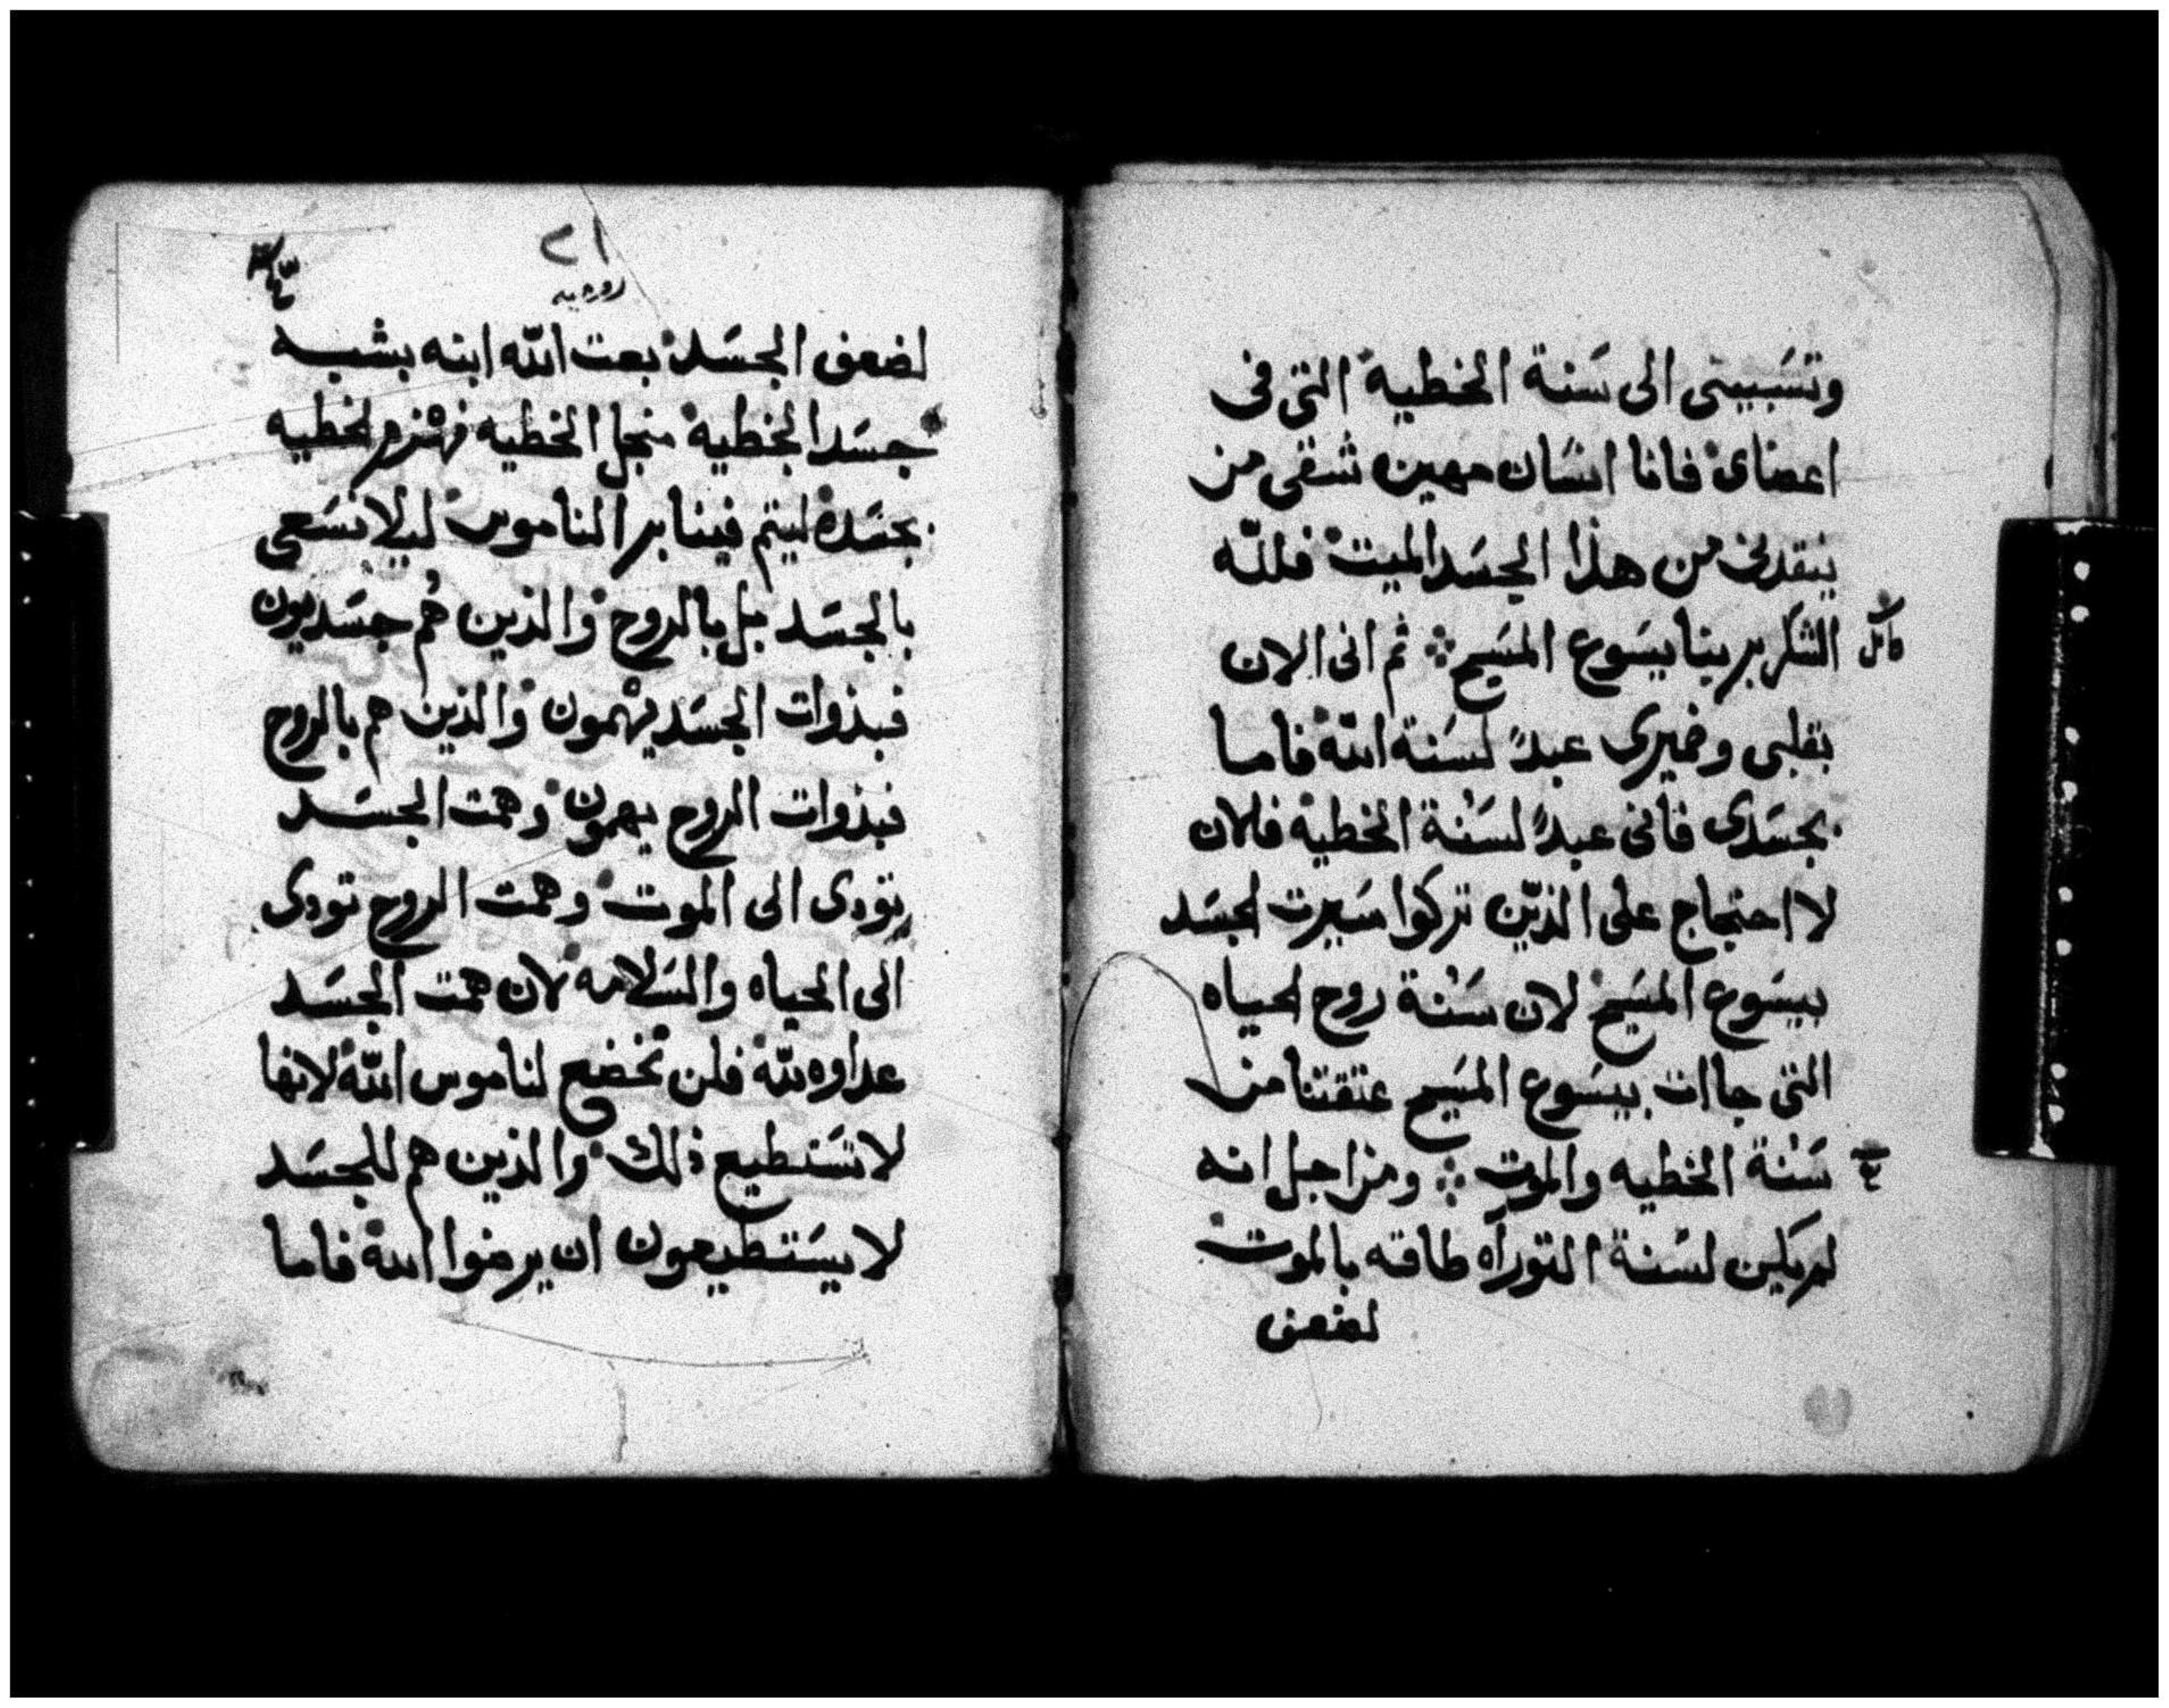 وتسَبيتى الى سَنة الخطية التى فى
اعضاى فانا انسَان مهين شقى من
ينقدنى من هذا الجسَد الميت فللّه
الشكر بربنا يسَوع المسَيح ثم انى الان
بقلبى وضميرى عبدً لسَنة اللّه فاما
بجسَدى فانى عبدً لسَنة الخطية فلان
لا احتجاج على الذيّن تركوا سَيرت الجسَد
بيسَوع المسَيح لان سَنة روح الحياه
التى جاات بيسَوع المسَيح عتقتنا من
سَنة الخطيه والموت ومن اجل انه
لم يكن لسَنة التوراه طاقه بالموت
لضعف
٢١
روميه
لضعف الجسَد بعت اللّه ابنه بشبه
جسَد الخطية منجل الخطيه فهزم الخطيه
بجسَده ليتم فينا بر الناموس ليلا نسَعى
بالجسَد بل بالروح والذين هُم جسَديون
فبذوات الجسَد يهمون والذين هم بالروح
فبذوات الروح يهمون وهمت الجسَد
تودى الى الموت وهمت الروح تودى
الى الحياه والسَلامه لان همت الجسَد
عداوه للّه فلن تخضع لناموس اللّه لانها
لا تسَتطيع ذلك والذين هم للجسَد
لا يسَتطيعون ان يرضوا اللّه فاما